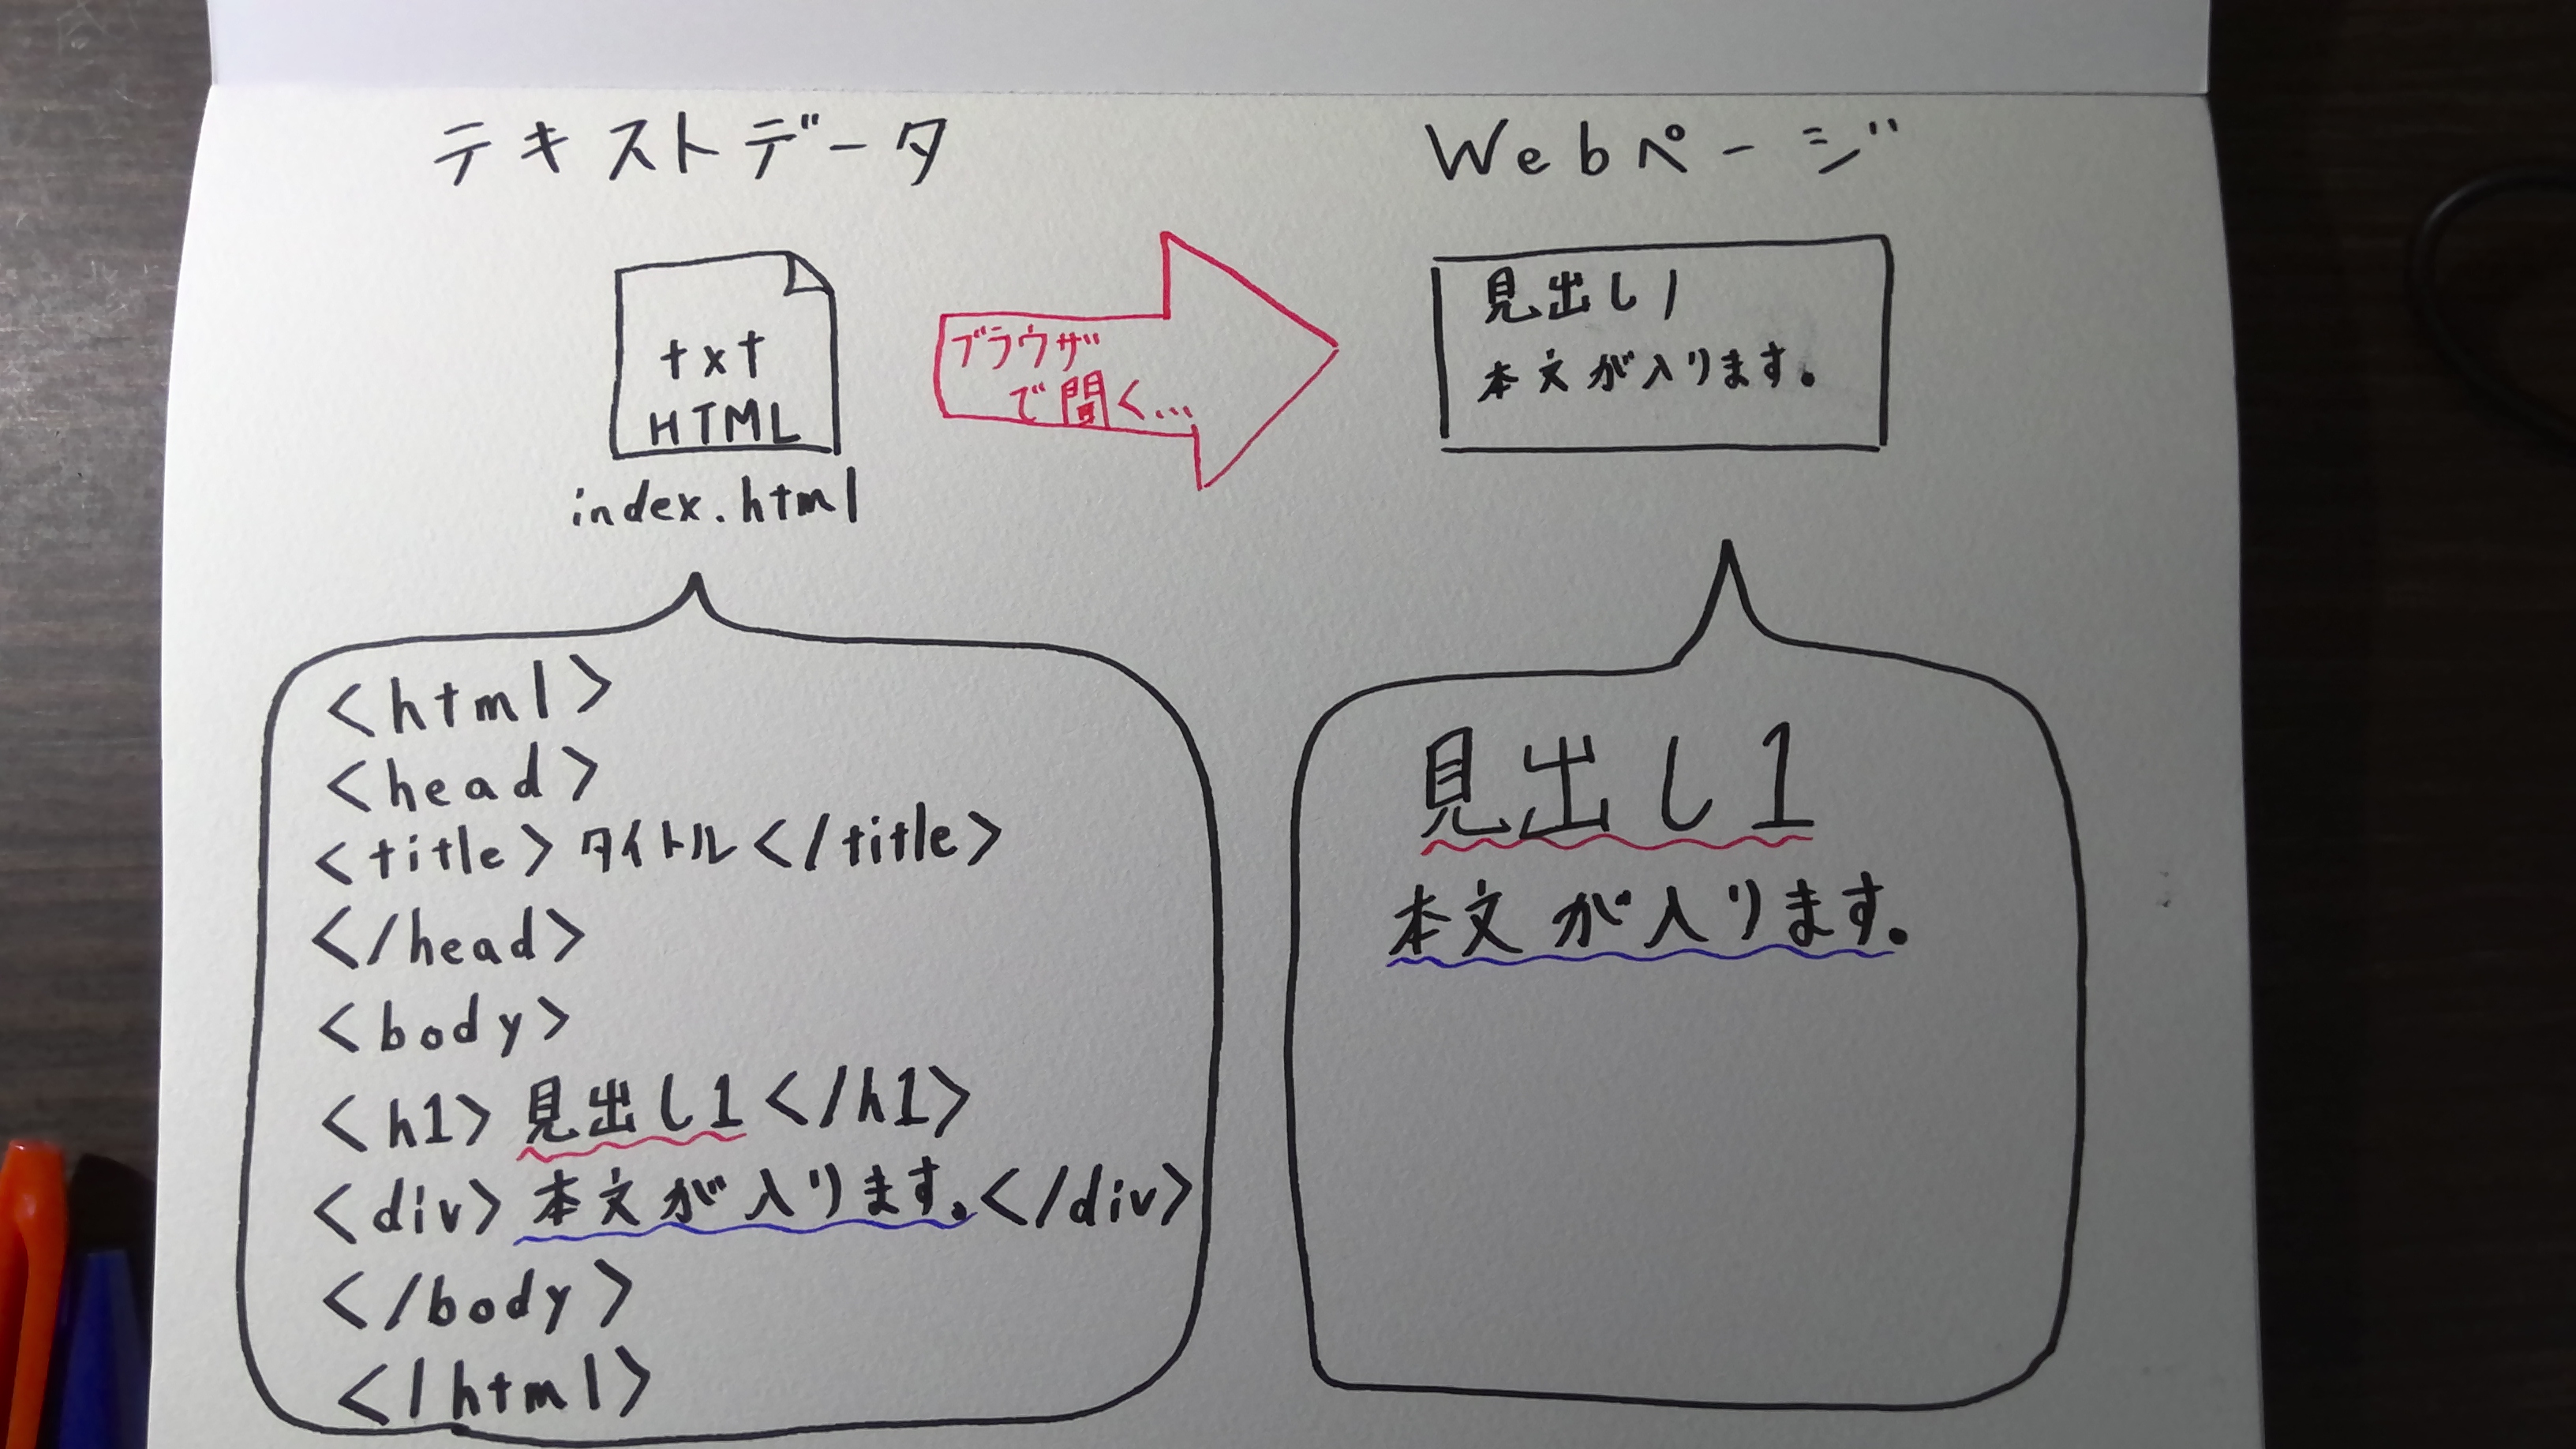 テキストデータ
Webページ
txt
HTML
index.html
ブラウザ
で開く...
見出し1
本文が入ります。
<html>
<head>
<title>タイトル</title>
</head>
<body>
<h1>見出し1</h1>
<div>本文が入ります。</div>
</body>
</html>
見出し1
本文が入ります。